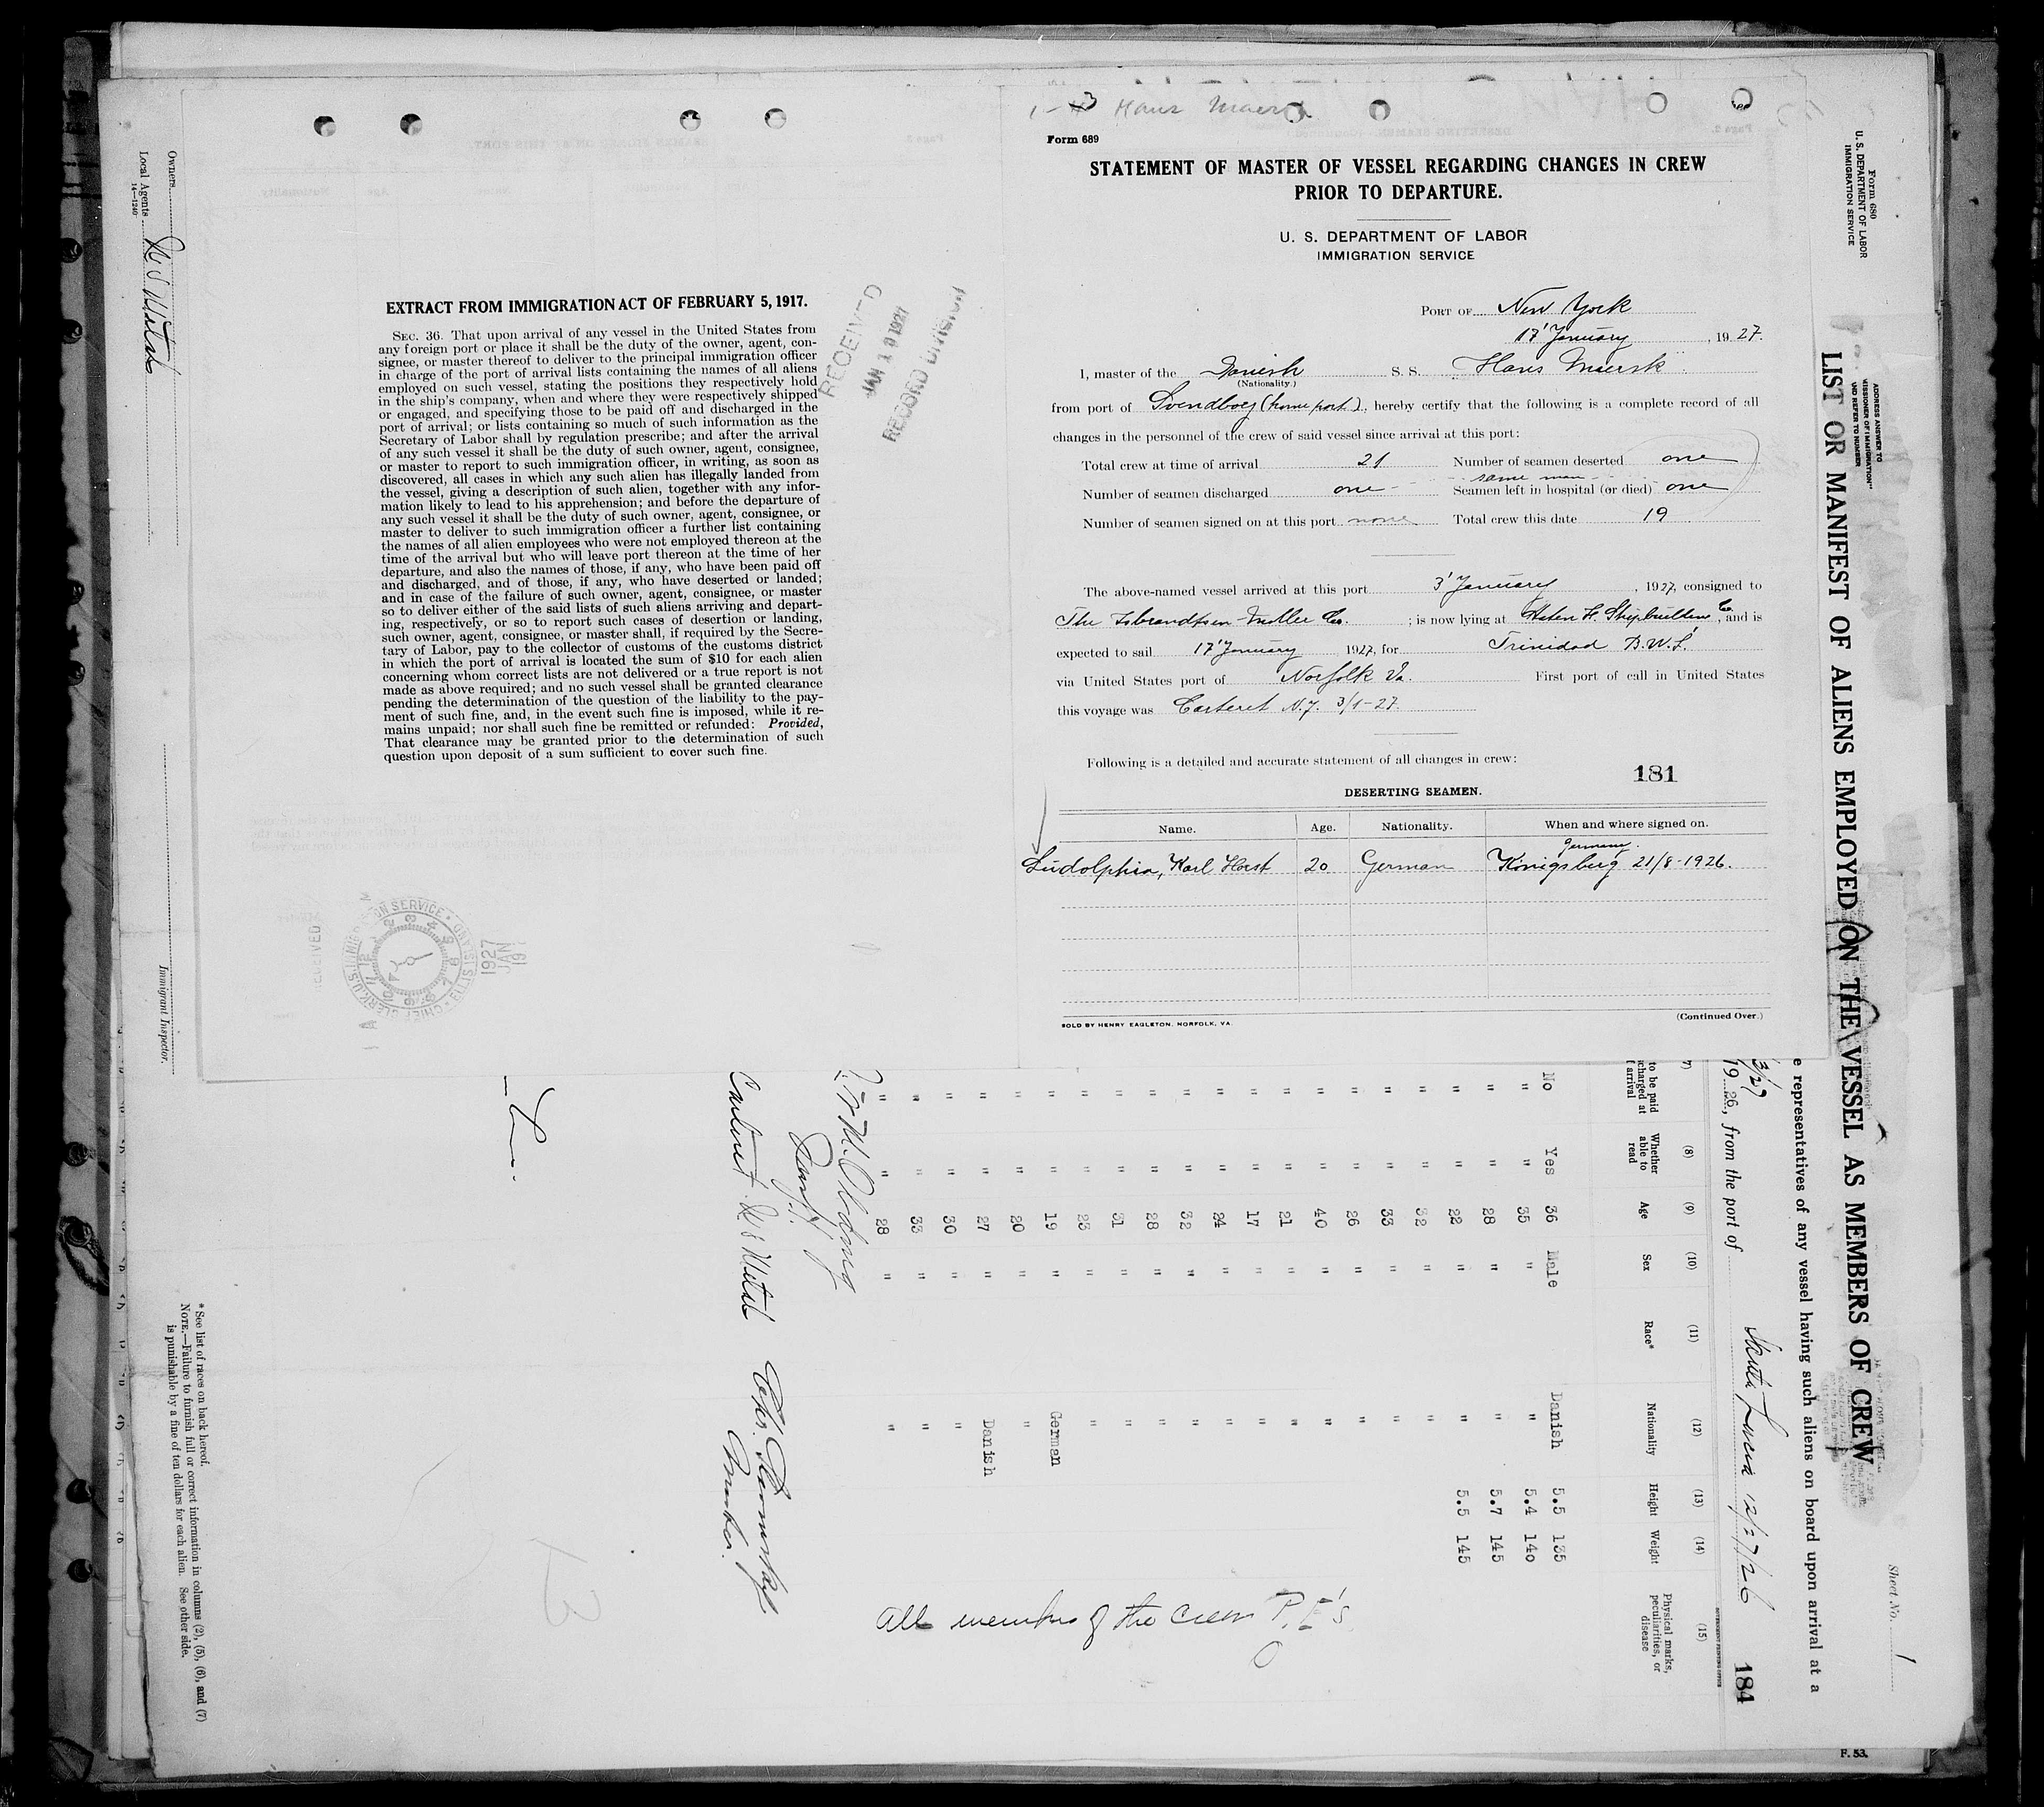 Form 689
STATEMENT OF MASTER OF VESSEL REGARDING CHANGES IN CREW
PRIOR TO DEPARTURE.
U. S. DEPARTMENT OF LABOR
IMMIGRATION SERVICE
PORT OF New York
17' January, 1927.
I, master of the Danish S. S. Hans Maersk
(Nationality.)
from port of Svendborg (home port), hereby certify that the following is a complete record of all
changes in the personnel of the crew of said vessel since arrival at this port:
Total crew at time of arrival 21 Number of seamen deserted one
same man
Number of seamen discharged one Seamen left in hospital (or died) one
Number of seamen signed on at this port none Total crew this date 19
The above-named vessel arrived at this port 3' January, 1927, consigned to
The Isbrandtsen-Moller Co.; is now lying at Staten Is. Shipbuilding Co, and is
expected to sail 17' January 1927, for Trinidad B.W.I.
via United States port of Norfolk Va. First port of call in United States
this voyage was Carteret N.J. 3/1-27.
Following is a detailed and accurate statement of all changes in crew:
181
DESERTING SEAMEN.
Name. Age. Nationality. When and where signed on.
Germany.
Ludolphin, Karl Horst 20 German Königsberg 21/8-1926.
(Continued Over.)
SOLD BY HENRY EAGLETON, NORFOLK, VA.
EXTRACT FROM IMMIGRATION ACT OF FEBRUARY 5, 1917.
SEC. 36. That upon arrival of any vessel in the United States from
any foreign port or place it shall be the duty of the owner, agent, con-
signee, or master thereof to deliver to the principal immigration officer
in charge of the port of arrival lists containing the names of all aliens
employed on such vessel, stating the positions they respectively hold
in the ship's company, when and where they were respectively shipped
or engaged, and specifying those to be paid off and discharged in the
port of arrival; or lists containing so much of such information as the
Secretary of Labor shall by regulation prescribe; and after the arrival
of any such vessel it shall be the duty of such owner, agent, consignee,
or master to report to such immigration officer, in writing, as soon as
discovered, all cases in which any such alien has illegally landed from
the vessel, giving a description of such alien, together with any infor-
mation likely to lead to his apprehension; and before the departure of
any such vessel it shall be the duty of such owner, agent, consignee, or
master to deliver to such immigration officer a further list containing
the names of all alien employees who were not employed thereon at the
time of the arrival but who will leave port thereon at the time of her
departure, and also the names of those, if any, who have been paid off
and discharged, and of those, if any, who have deserted or landed;
and in case of the failure of such owner, agent, consignee, or master
so to deliver either of the said lists of such aliens arriving and depart-
ing, respectively, or so to report such cases of desertion or landing,
such owner, agent, consignee, or master shall, if required by the Secre-
tary of Labor, pay to the collector of customs of the customs district
in which the port of arrival is located the sum of $10 for each alien
concerning whom correct lists are not delivered or a true report is not
made as above required; and no such vessel shall be granted clearance
pending the determination of the question of the liability to the pay-
ment of such fine, and, in the event such fine is imposed, while it re-
mains unpaid; nor shall such fine be remitted or refunded: Provided,
That clearance may be granted prior to the determination of such
question upon deposit of a sum sufficient to cover such fine.
RECEIVED
JAN 19 1927
RECORD DIVISION
CHIEF CLERK, U.S. IMMIGRATION SERVICE ELLIS ISLAND
1927
JAN
19
Form 680
U. S. DEPARTMENT OF LABOR
IMMIGRATION SERVICE
Sheet No. 1
LIST OR MANIFEST OF ALIENS EMPLOYED ON THE VESSEL AS MEMBERS OF CREW
e representatives of any vessel having such aliens on board upon arrival at a
1926, from the port of Santa Lucia 12/27/26
184
(8) (9) (10) (11) (12) (13) (14) (15)
to be paid
charged at
arrival
Whether
able to
read
Age
Sex
Race*
Nationality
Height
Weight
Physical marks,
peculiarities, or
disease
No Yes 36 Male Danish 5.5 135
" " 35 " " 5.4 140
" " 28 " " 5.7 145
" " 22 " " 5.5 145
" " 32 " "
" " 33 " "
" " 26 " "
" " 40 " "
" " 21 " "
" " 17 " "
" " 24 " "
" " 32 " "
" " 28 " "
" " 31 " "
" " 23 " "
" " 19 " German
" " 20 " "
" " 27 " Danish
" " 30 " "
" " 33 " "
" " 28 " "
All members of the crew P.E's
Owners
Local Agents
14—1240
Immigrant Inspector.
* See list of races on back hereof.
NOTE.—Failure to furnish full or correct information in columns (2), (5), (6), and (7)
is punishable by a fine of ten dollars for each alien. See other side.
F. 53.